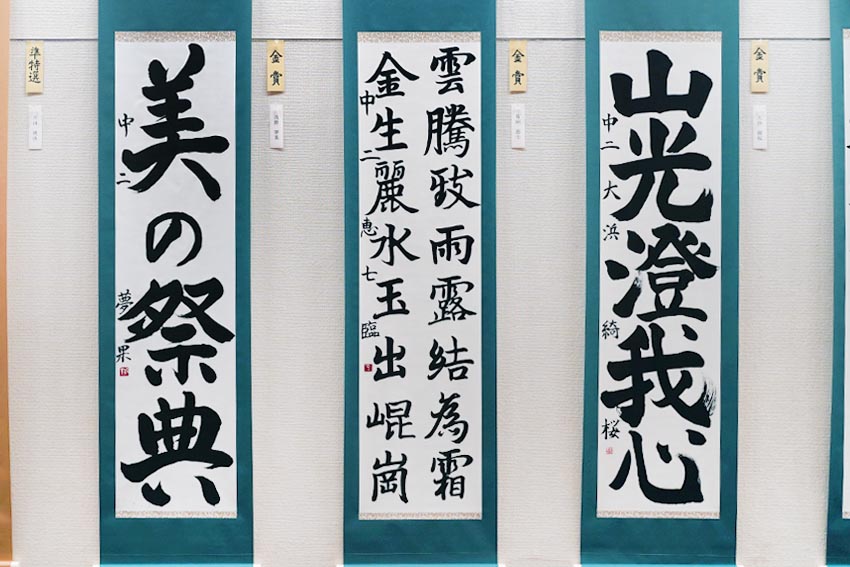 準特選
美の祭典
中二 夢果
金賞
雲騰致雨露結為霜
金生麗水玉出崐崗
中二 恵七臨
金賞
山光澄我心
中二 大浜綺桜